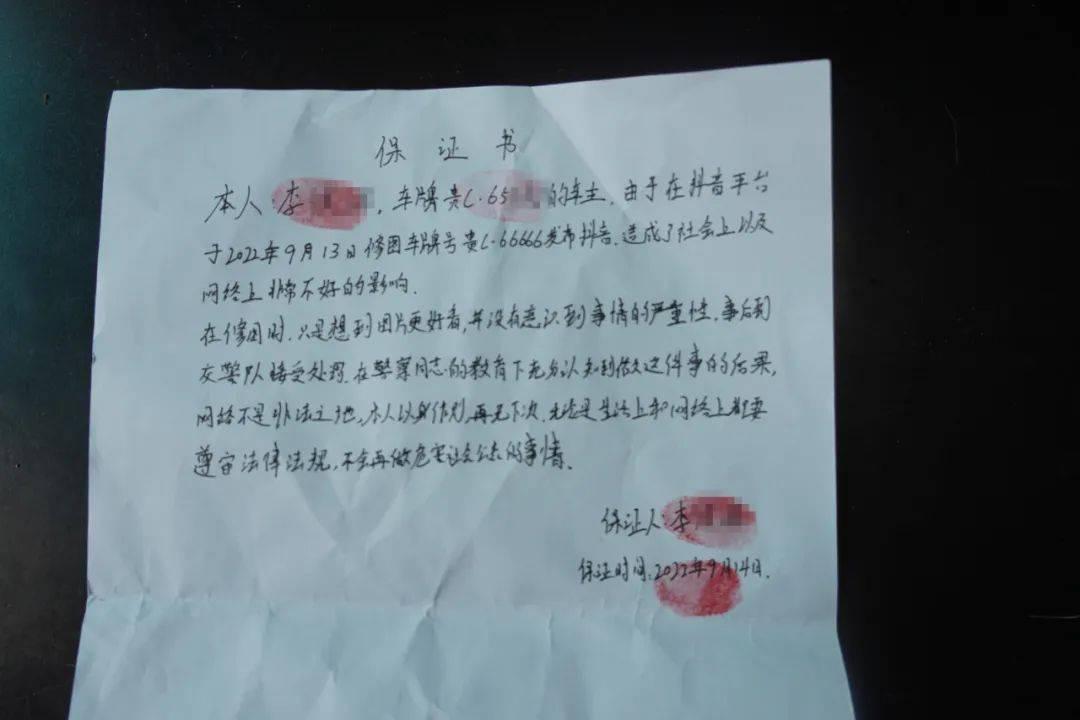 保证书
本人:李,车牌贵C·65的车主,由于在抖音平台
于2022年9月13日修图车牌号贵C·66666发布抖音.造成了社会上以及
网络上非常不好的影响.
在修图时.只是想到图片更好看,并没有意识到事情的严重性.事后到
交警队接受处理.在警察同志的教育下充分认知到做这件事的后果,
网络不是非法之地,本人以身作则,再无下次.无论是生活上和网络上都要
遵守法律法规,不会再做危害社会公共的事情.
保证人:李
保证时间:2022年9月14日.